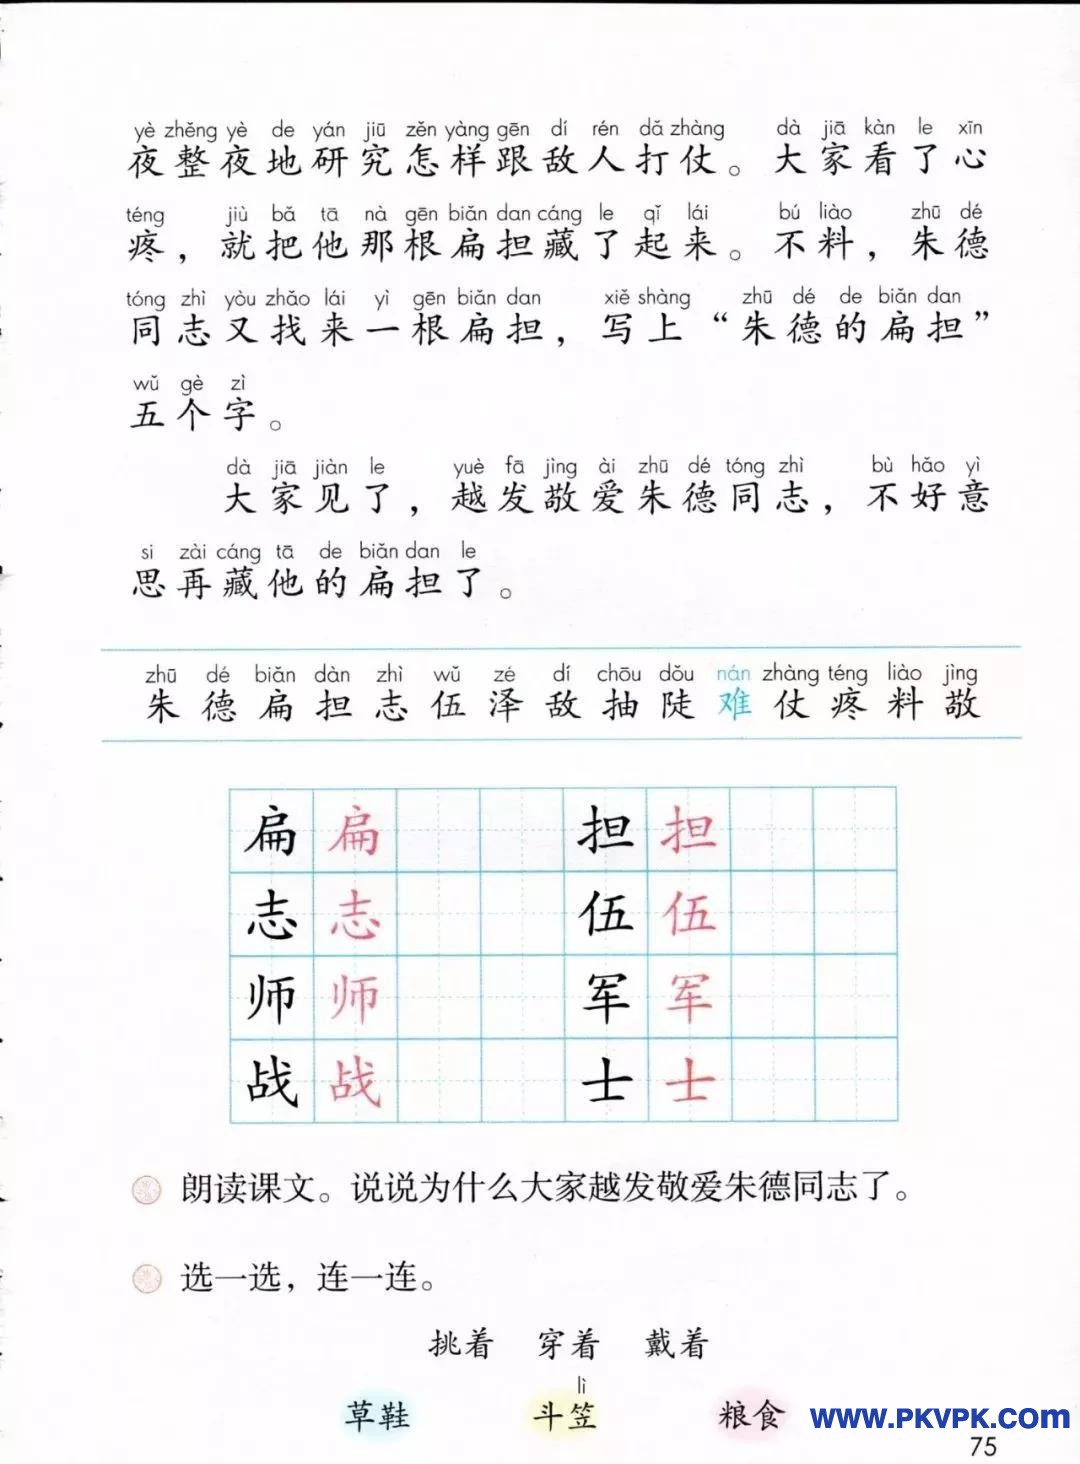 yè zhěng yè de yán jiū zěn yàng gēn dí rén dǎ zhàng dà jiā kàn le xīn
夜整夜地研究怎样跟敌人打仗。大家看了心
téng jiù bǎ tā nà gēn biǎn dan cáng le qǐ lái bú liào zhū dé
疼，就把他那根扁担藏了起来。不料，朱德
tóng zhì yòu zhǎo lái yì gēn biǎn dan xiě shàng zhū dé de biǎn dan
同志又找来一根扁担，写上“朱德的扁担”
wǔ gè zì
五个字。
dà jiā jiàn le yuè fā jìng ài zhū dé tóng zhì bù hǎo yì
大家见了，越发敬爱朱德同志，不好意
si zài cáng tā de biǎn dan le
思再藏他的扁担了。
zhū dé biǎn dàn zhì wǔ zé dí chōu dǒu nán zhàng téng liào jìng
朱德扁担志伍泽敌抽陡难仗疼料敬
扁 扁 担 担
志 志 伍 伍
师 师 军 军
战 战 士 士
朗读课文。说说为什么大家越发敬爱朱德同志了。
选一选，连一连。
挑着 穿着 戴着
lì
草鞋 斗笠 粮食
www.PKVPK.com
75